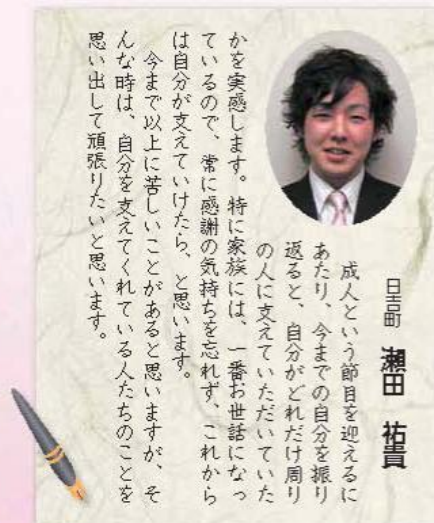 日吉町 瀬田 祐貴
成人という節目を迎えるに
あたり、今までの自分を振り
返ると、自分がどれだけ周り
の人に支えていただいていた
かを実感します。特に家族には、一番お世話になっ
ているので、常に感謝の気持ちを忘れず、これから
は自分が支えていけたら、と思います。
今まで以上に苦しいことがあると思いますが、そ
んな時は、自分を支えてくれている人たちのことを
思い出して頑張りたいと思います。